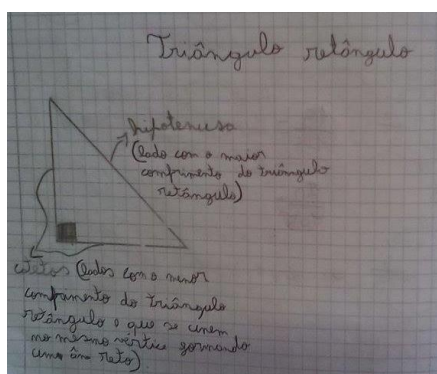 Triângulo retângulo
hipotenusa
(lado com o maior
comprimento do triângulo
retângulo)
catetos (lados com o menor
comprimento do triângulo
retângulo e que se unem
no mesmo vértice formando
uma âm reto)